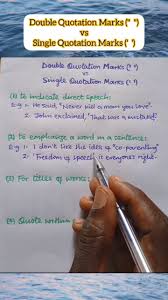 Double Quotation Marks (" ")
vs
Single Quotation Marks (' ')
Double Quotation Marks (" ")
vs
Single Quotation Marks (' ')
(1) To indicate direct speech:
Eg 1- He said, "Never kill a mom you love"
2- John exclaimed, "That was a mistake!"
(2) To emphasize a word in a sentence:
Eg 1- I don't like the idea of "co-parenting"
2- 'Freedom of speech' is everyone's right.
(3) For titles of works:
(4) Quote within